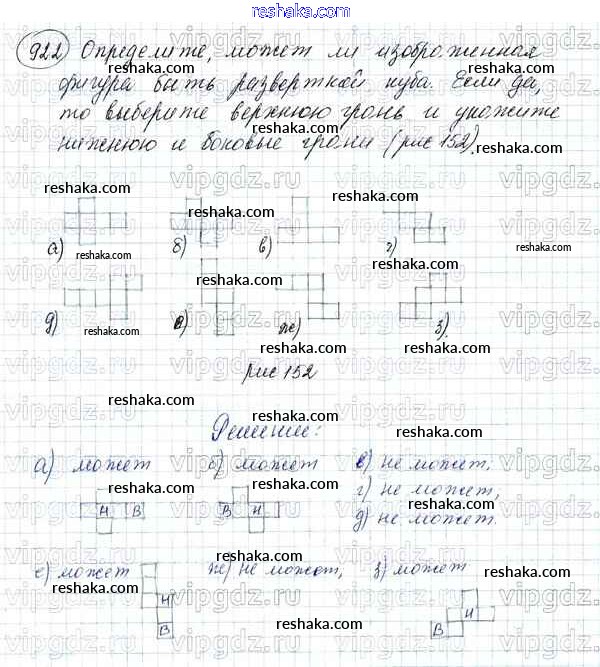 reshaka.com
922 Определите, может ли изображенная
фигура быть разверткой куба. Если да,
то выберите верхнюю грань и укажите
нижнюю и боковые грани (рис 152).
а) б) в) г)
д) е) ж) з)
рис 152
Решение:
а) может б) может в) не может,
г) не может,
д) не может.
Н В В Н
е) может ж) не может, з) может
Н
В
Н
В
reshaka.com
vipgdz.ru